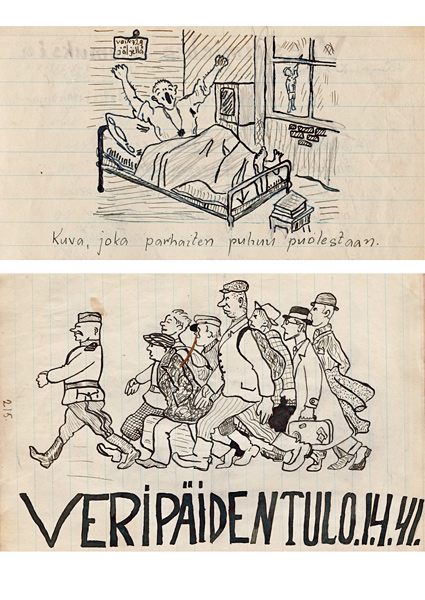 jäljellä
Kuva, joka parhaiten puhuu puolestaan.
215
VERIPÄIDEN TULO. 1.4. 41.